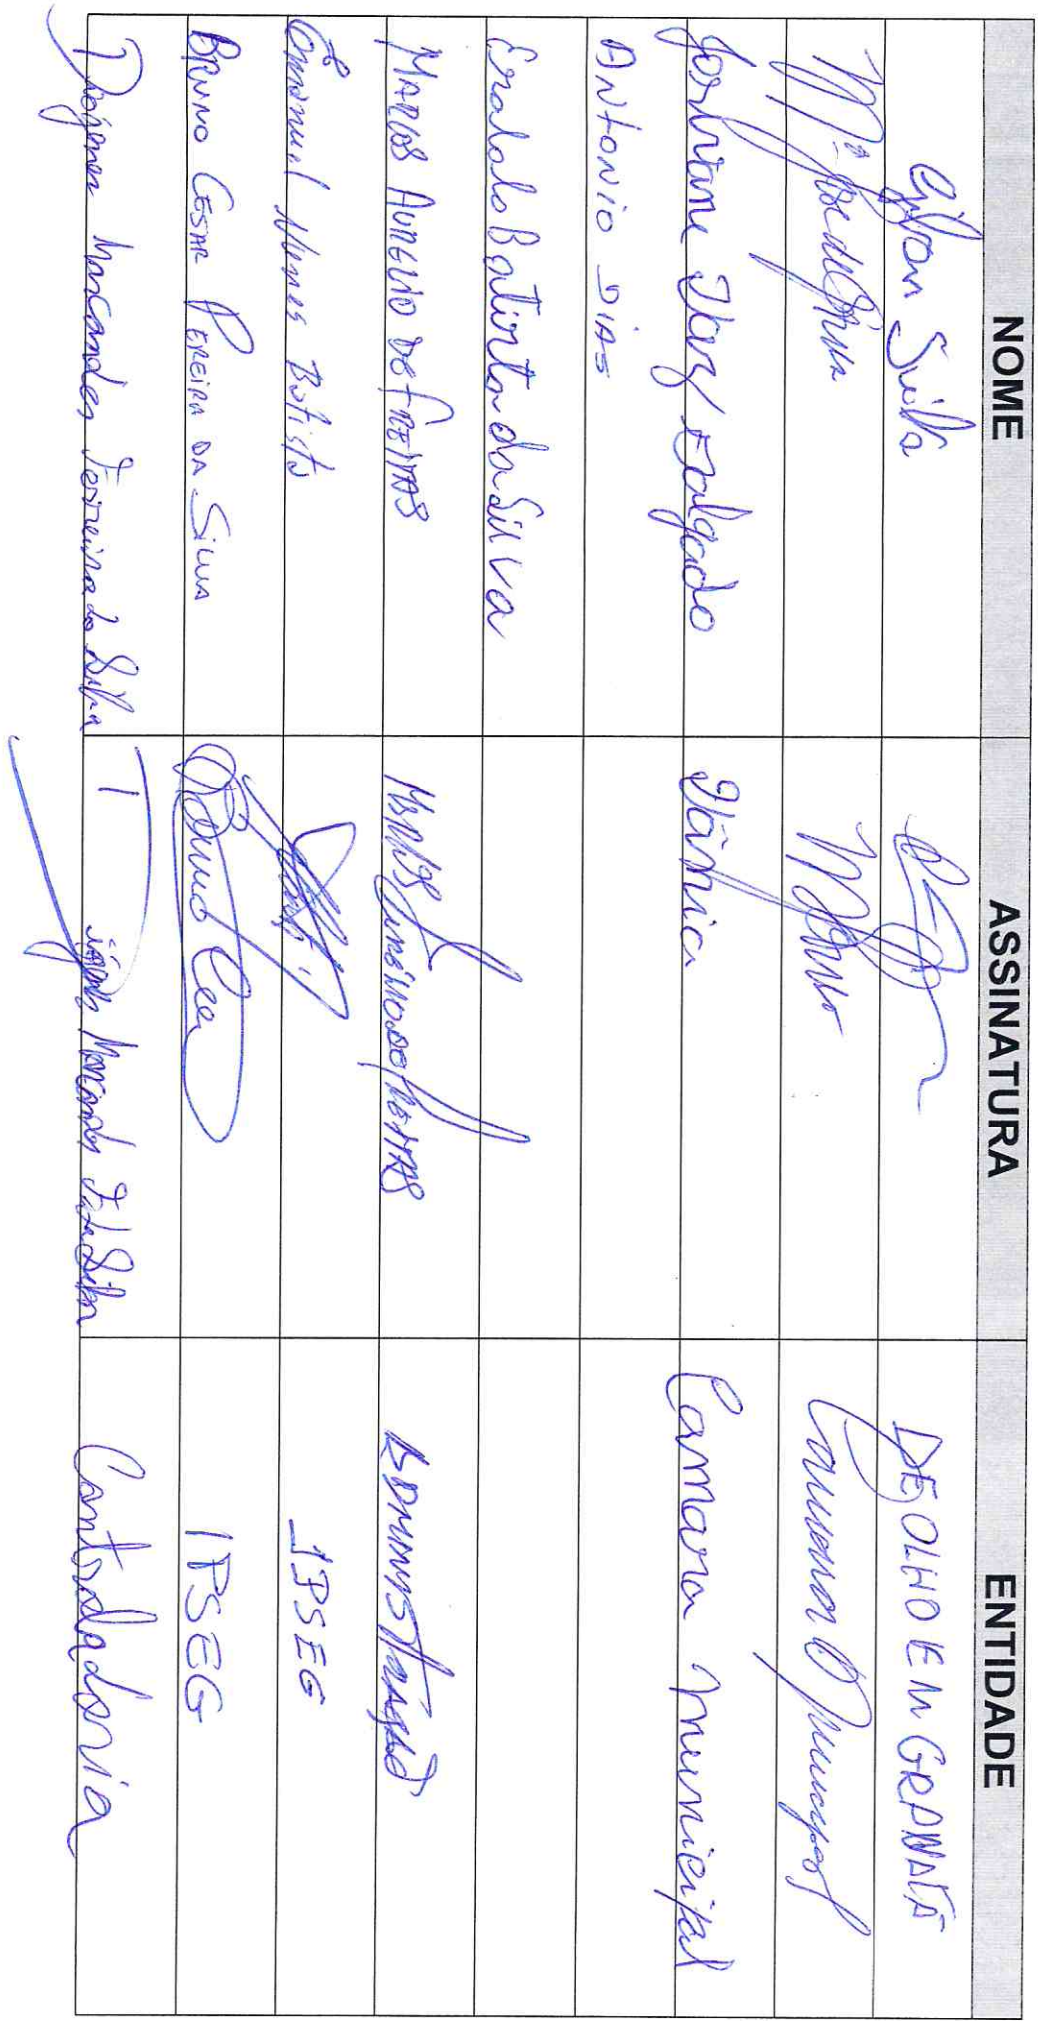 NOME ASSINATURA ENTIDADE
Gilson Silva DE OLHO EM GRANATÃ
Mª José de Silva Câmara Municipal
Tânia Camara Municipal
ANTONIO DIAS
Eraldo Batista da Silva
MARCOS AURELIO DE FREITAS MARCOS AURELIO DE FREITAS ADMINISTRAÇÃO
Emanuel Nunes Batista IPSEG
BRUNO CESAR PEREIRA DA SILVA Bruno Cesar IPSEG
Diógenes Marcondes Ferreira da Silva Diógenes Marcondes F. da Silva Controladoria